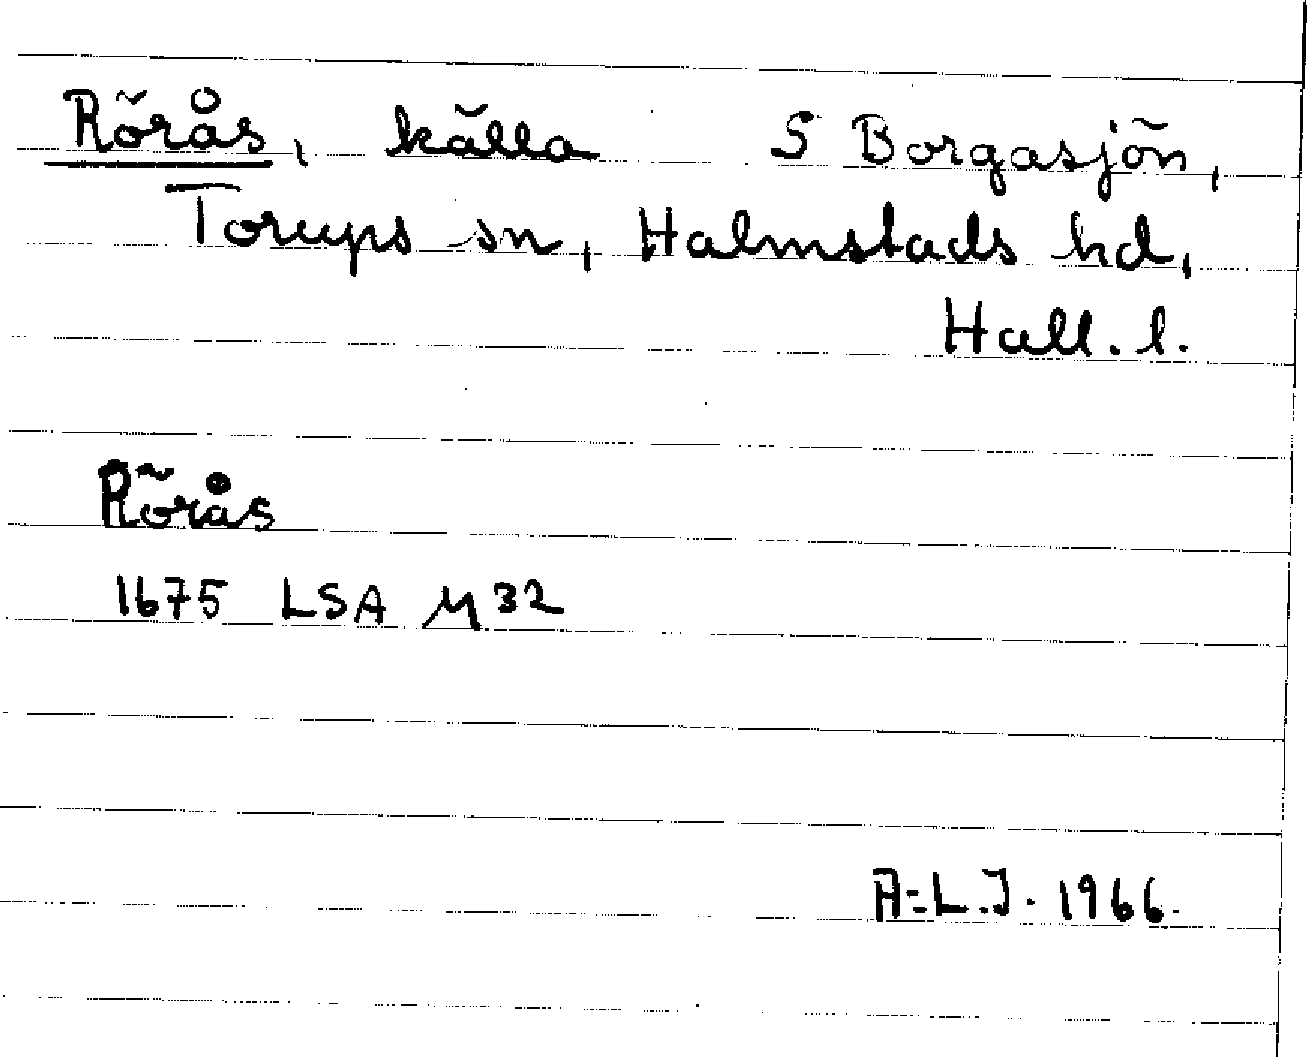 Rörås, källa S Borgasjön,
Torups sn, Halmstads hd,
Hall. l.
Rörås
1675 LSA M32
A-L.J. 1966.